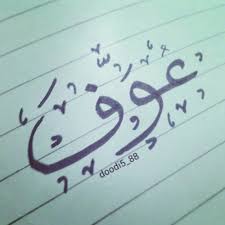 عوض
doodi5_88